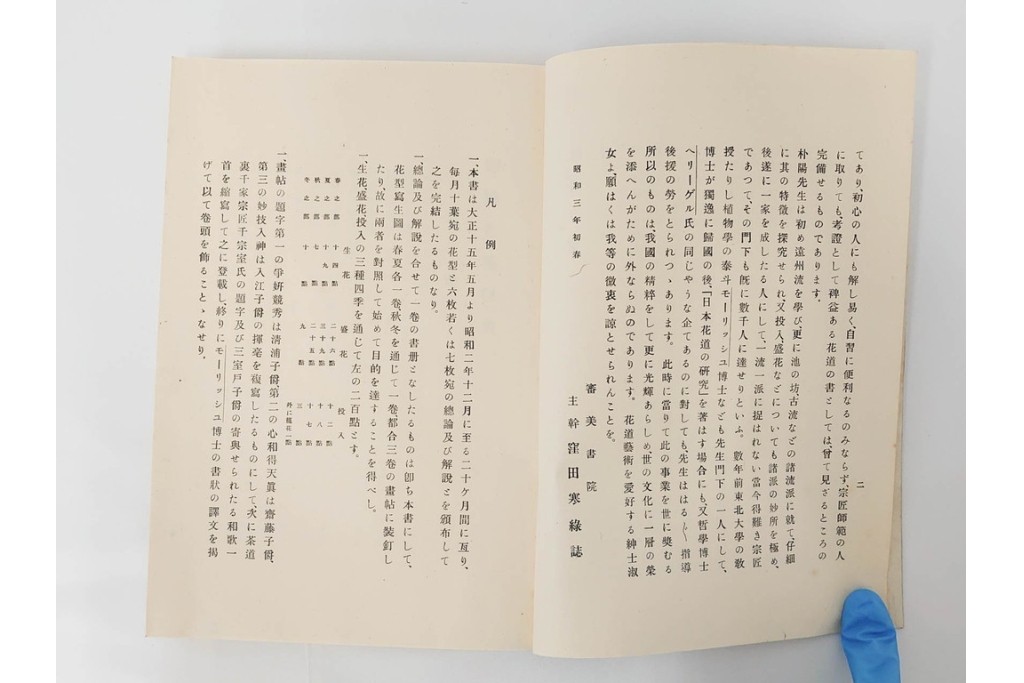 二
てあり、初心の人にも解し易く、自習に便利なるのみならず、宗匠師範の人
に取りても、考證として裨益ある花道の書としては、曾て見ざるところの
完備せるものであります。
朴陽先生は初め遠州流を學び、更に池の坊、古流などの諸流派に就て、仔細
に其の特徴を探究せられ、又投入、盛花などについても諸派の妙所を極め、
後遂に一家を成したる人にして、一流一派に捉はれない當今得難き宗匠
であつて、その門下も既に數千人に達せりといふ。數年前東北大學の教
授たりし植物學の泰斗モーリッシュ博士なども先生門下の一人にして、
博士が獨逸に歸國の後、「日本花道の研究」を著はす場合にも、又哲學博士
ヘリーゲル氏の同じやうな企てあるのに對しても、先生ははる〲指導
後援の勞をとられつゝあります。此時に當りて此の事業を世に奬むる
所以のものは、我國の精粹をして更に光輝あらしめ、世の文化に一層の榮
を添へんがために外ならぬのであります。花道藝術を愛好する紳士淑
女よ、願はくは我等の微衷を諒とせられんことを。
昭和三年初春
審美書院
主幹 窪田寒綠誌
凡例
一、本書は大正十五年五月より昭和二年十二月に至る二十ケ月間に亙り、
毎月十葉宛の花型と六枚若くは七枚宛の總論及び解說とを頒布して
之を完結したるものなり。
一、總論及び解說を合せて一卷の書册となしたるものは卽ち本書にして、
花型寫生圖は春夏各一卷秋冬を通じて一卷、都合三卷の畫帖に裝釘し
たり、故に兩者を對照して始めて目的を達することを得べし。
一、生花、盛花、投入の三種四季を通じて左の二百點とす。
生花 盛花 投入
春之部 十四點 二十六點 十二點
夏之部 十九點 三十九點 十八點
秋之部 十七點 二十五點 十七點
冬之部 十點 九點 三點
外に種花一點
一、畫帖の題字第一の爭姸競秀は淸浦子爵、第二の心和得天眞は齋藤子爵、
第三の妙技入神は入江子爵の揮毫を複寫したるものにして、次に茶道
裏千家宗匠千宗室氏の題字及び三室戶子爵の寄與せられたる和歌一
首を縮寫して之に登載し、終りにモーリッシュ博士の書狀の譯文を揭
げて以て卷頭を飾ることゝなせり。